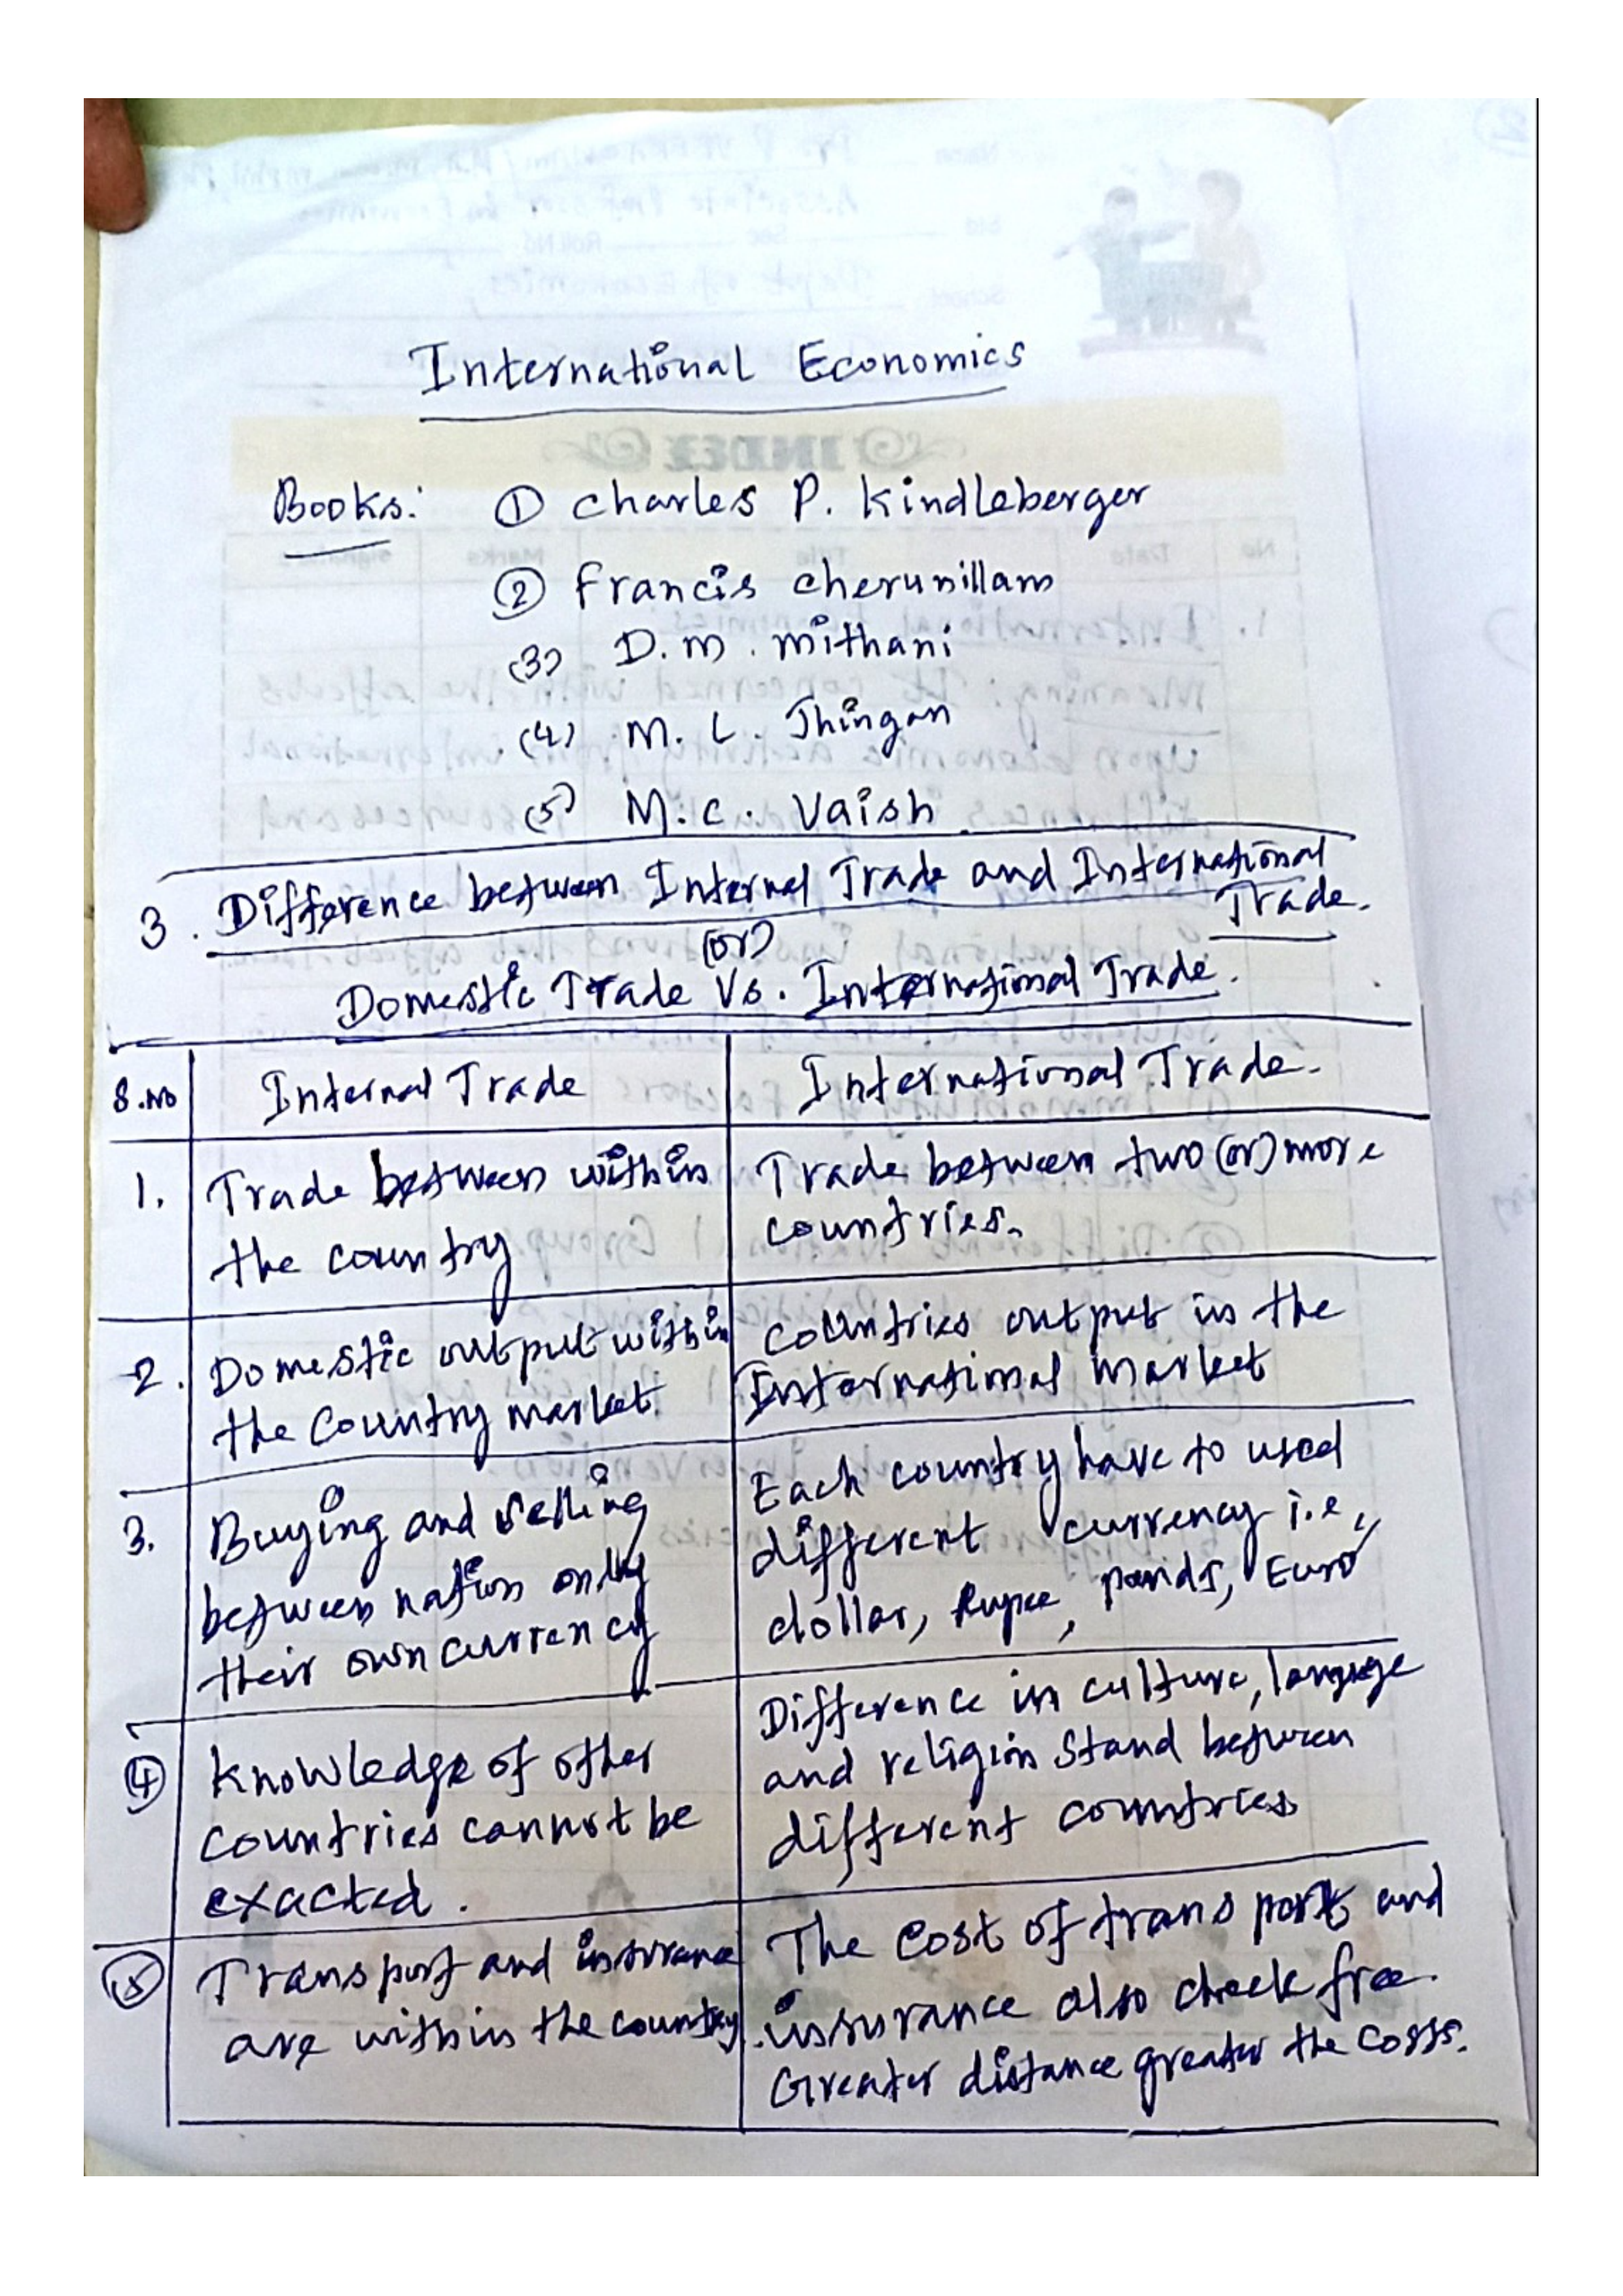 International Economics
Books: ① Charles P. Kindleberger
② Francis cherunillam
(3) D.M. mithani
(4) M. L. Jhingan
(5) M.C. Vaish
3. Difference between Internal Trade and International
Trade.
(or)
Domestic Trade Vs. International Trade.
S.No Internal Trade International Trade.
1. Trade between within
the country
Trade between two (or) more
countries.
2. Domestic output within
the Country market.
Countries output in the
International Market
3. Buying and Selling
between nation only
their own currency
Each country have to used
different currency i.e,
dollar, Rupee, pounds, Euro
④ Knowledge of other
countries cannot be
exacted.
Difference in culture, language
and religion Stand between
different countries
⑤ Transport and insurance
are within the country.
The Cost of transport and
insurance also check free.
Greater distance greater the costs.
INDEX